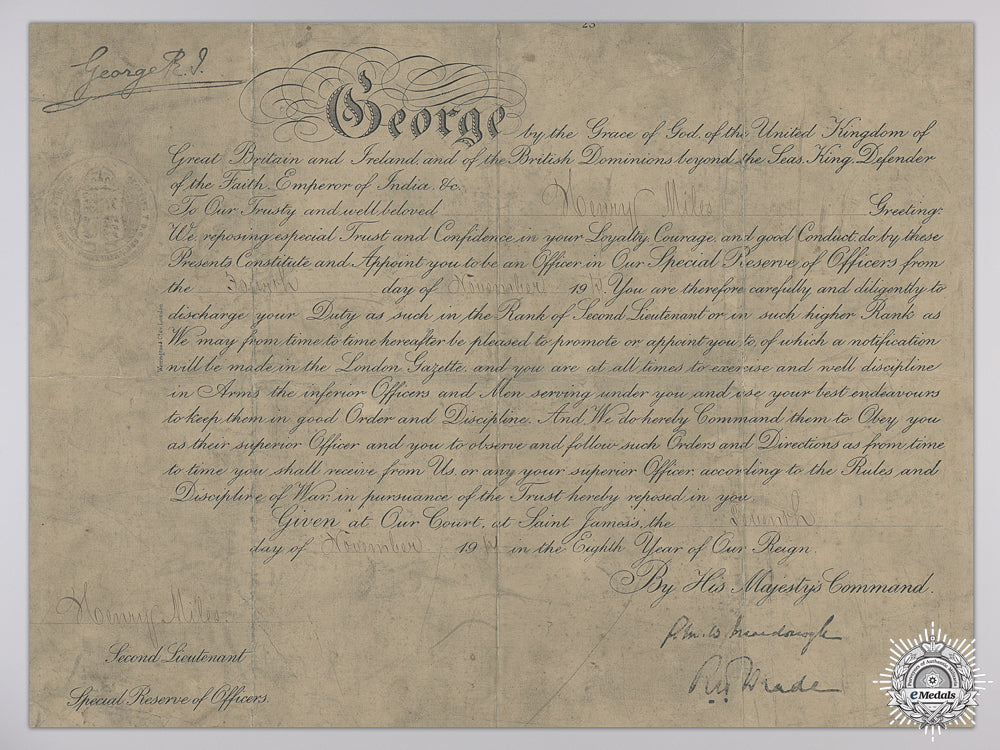 23
George R.I.
George by the Grace of God, of the United Kingdom of
Great Britain and Ireland, and of the British Dominions beyond the Seas, King, Defender
of the Faith, Emperor of India, &c.
To Our Trusty and well beloved Henry Miles Greeting:
We, reposing especial Trust and Confidence in your Loyalty, Courage, and good Conduct, do by these
Presents Constitute and Appoint you to be an Officer in Our Special Reserve of Officers from
the day of November 19 . You are therefore carefully and diligently to
discharge your Duty as such in the Rank of Second Lieutenant or in such higher Rank as
We may from time to time hereafter be pleased to promote or appoint you to, of which a notification
will be made in the London Gazette, and you are at all times to exercise and well discipline
in Arms the inferior Officers and Men serving under you and use your best endeavours
to keep them in good Order and Discipline. And We do hereby Command them to Obey you
as their superior Officer and you to observe and follow such Orders and Directions as from time
to time you shall receive from Us, or any your superior Officer, according to the Rules and
Discipline of War, in pursuance of the Trust hereby reposed in you.
Given at Our Court, at Saint James's, the
day of November 19 in the Eighth Year of Our Reign.
By His Majesty's Command.
Henry Miles.
Second Lieutenant
Special Reserve of Officers.
eMedals